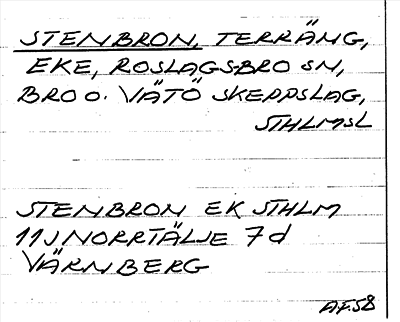 STENBRON, TERRÄNG,
EKE, ROSLAGSBRO SN,
BRO O. VÄTÖ SKEPPSLAG,
STHLMSL
STENBRON EK STHLM
11J NORRTÄLJE 7d
VÄRNBERG
AF.58